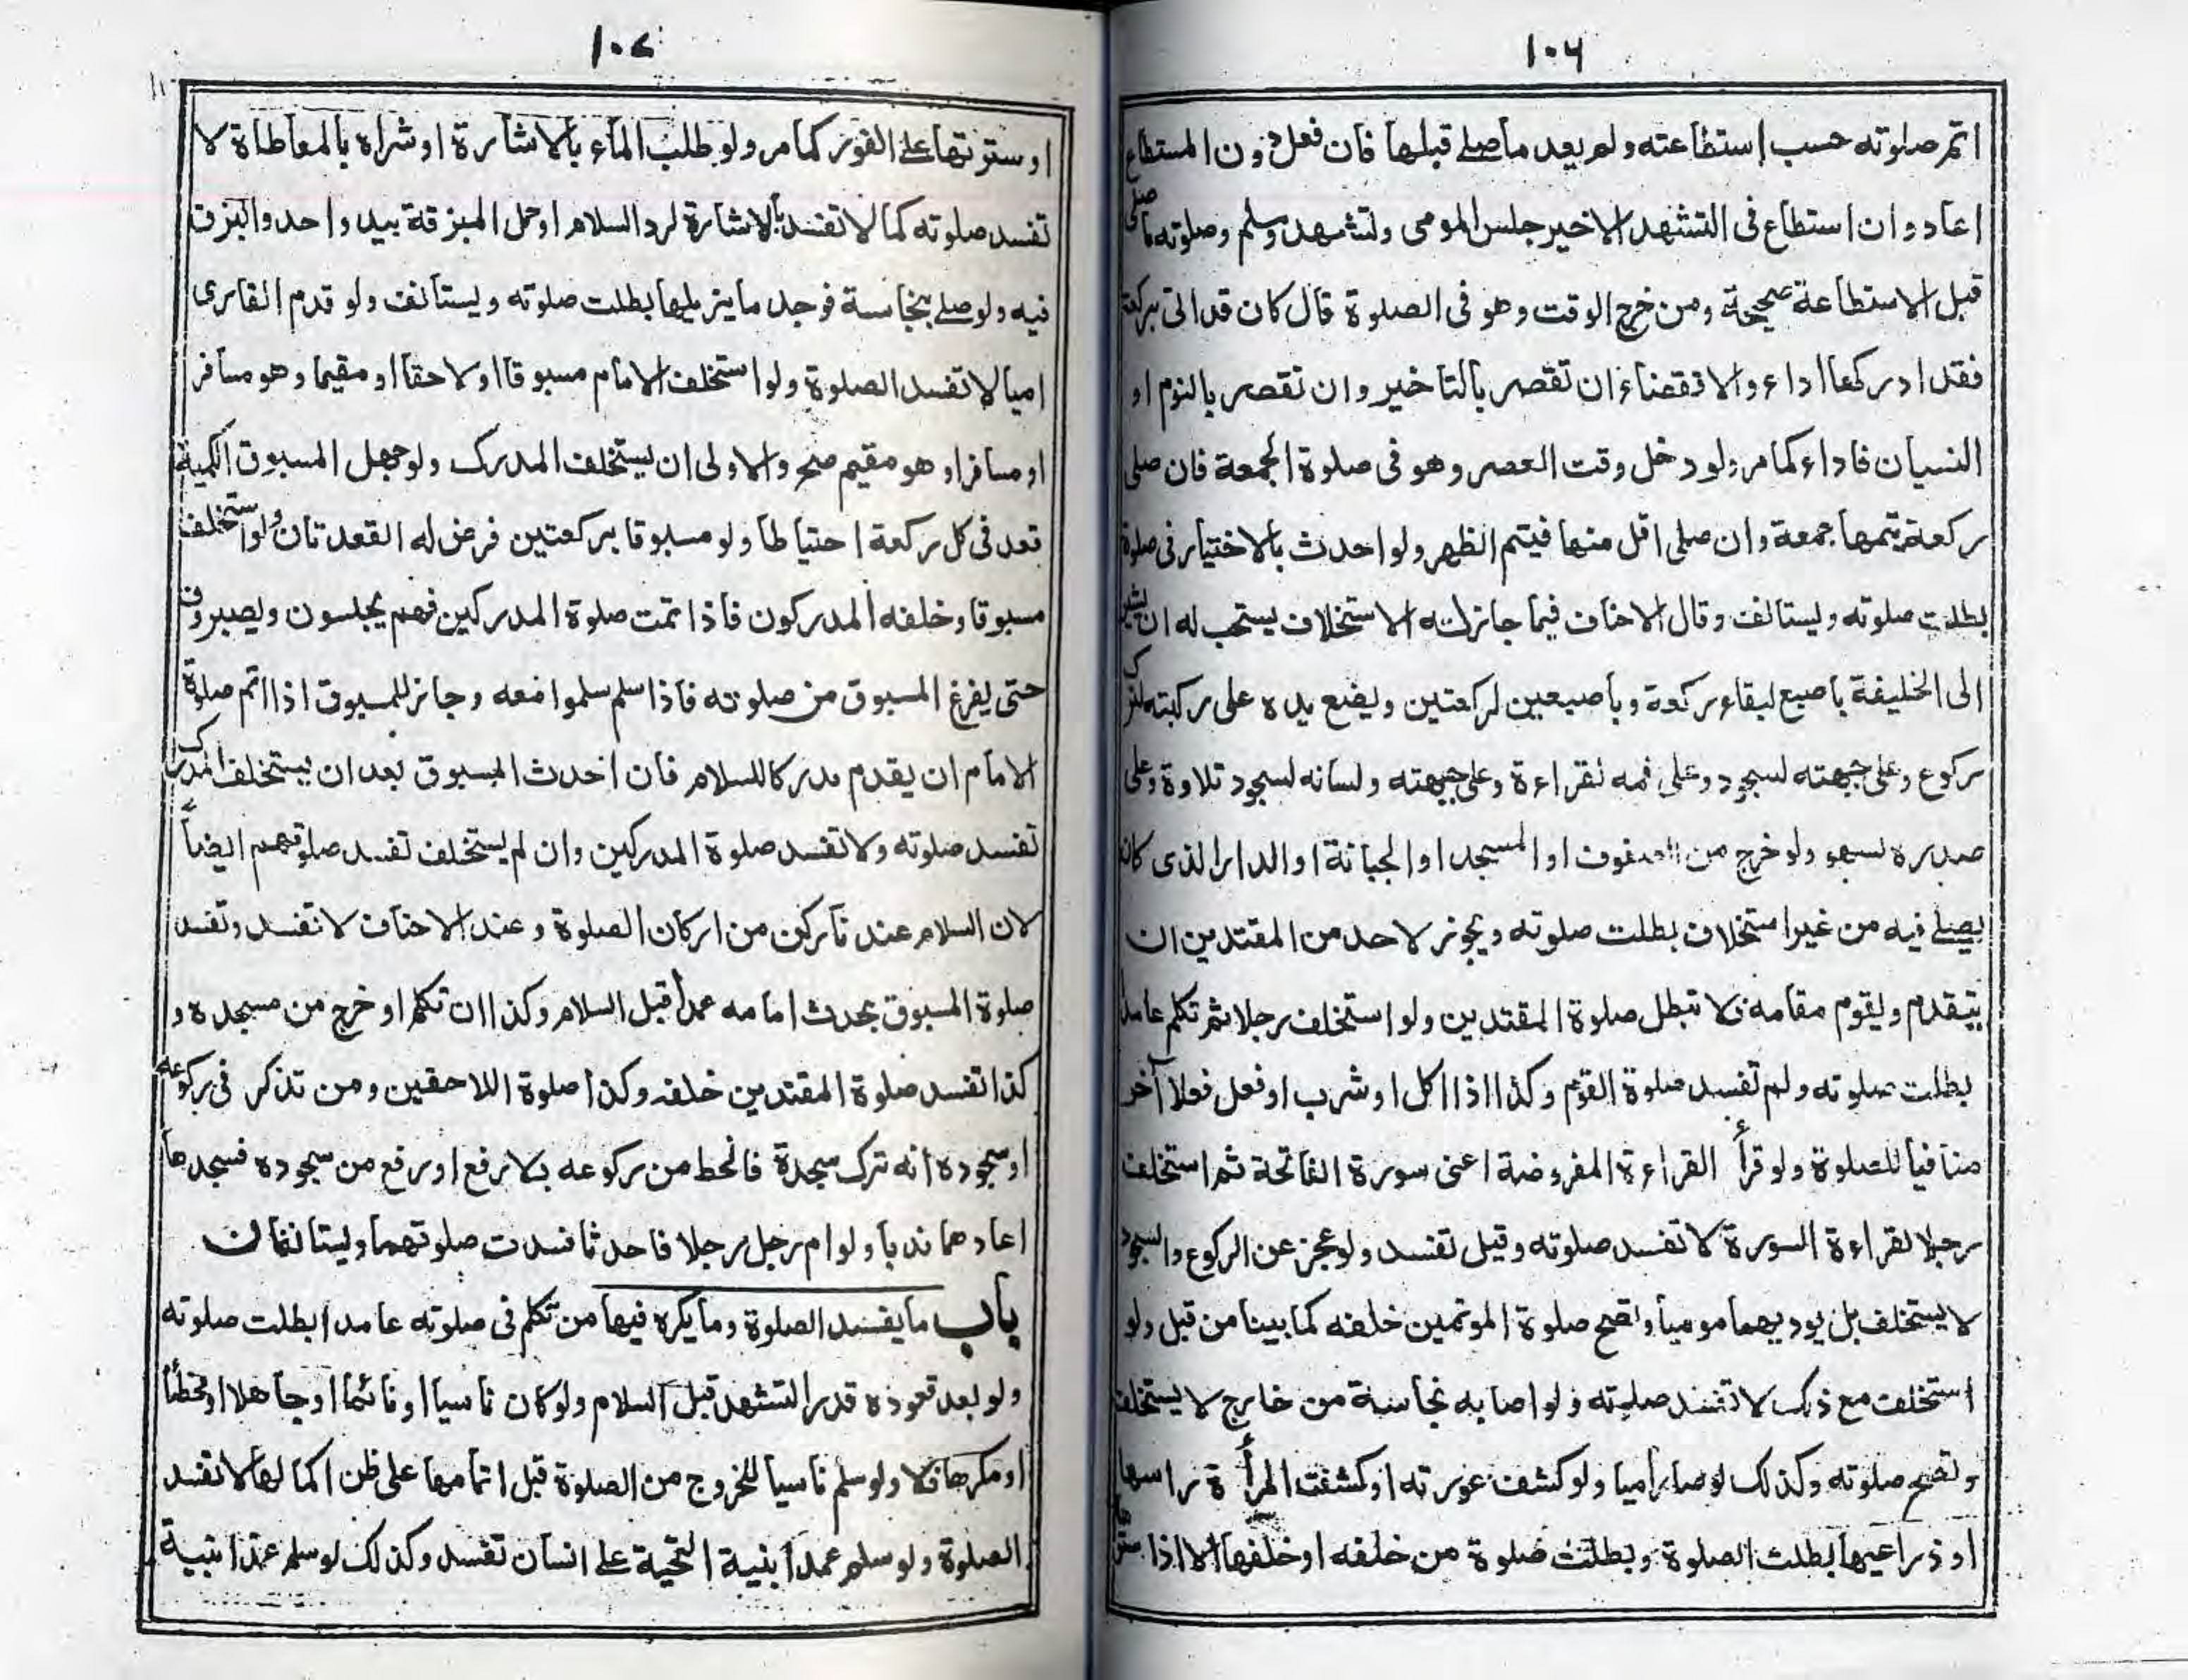 ١٠٦
اتم صلوته حسب استطاعته ولم يعد ما صلے قبلها فان فعل دون المستطاع
اعاد وان استطاع فى التشهد الاخير جلس المومى وتشهد وسلم وصلوته ما صلى
قبل الاستطاعة صحيحة ومن خرج الوقت وهو فى الصلوة قال كان قد اتى بركعة
فقد ادركها اداء والا فقضاء ان تقصر بالتاخير وان تقصر بالنوم او
النسيان فاداء كما مر ولو دخل وقت العصر وهو فى صلوة الجمعة فان صلى
ركعة يتمها جمعة وان صلى اقل منها فيتم الظهر ولو احدث بالاختيار فى صلوة
بطلت صلوته ويستانف وقال الاحناف فيما جاز له الاستخلاف يستحب له ان يشير
الى الخليفة باصبع لبقاء ركعة وباصبعين لركعتين ويضع يده على ركبته لترك
ركوع وعلى جبهته لسجود وعلى فمه لقراءة وعلى جبهته ولسانه لسجود تلاوة وعلى
صدره لسهو ولو خرج من الصفوف او المسجد او الجبانة او الدار الذى كان
يصلے فيه من غير استخلاف بطلت صلوته ويجوز لاحد من المقتدين ان
يتقدم ويقوم مقامه فلا تبطل صلوة المقتدين ولو استخلف رجلا ثم تكلم عامدا
بطلت صلوته ولم تفسد صلوة القوم وكذا اذا اكل او شرب او فعل فعلا آخر
منافيا للصلوة ولو قرأ القراءة المفروضة اعنى سورة الفاتحة ثم استخلف
رجلا لقراءة السورة لا تفسد صلوته وقيل تفسد ولو عجز عن الركوع والسجود
لا يستخلف بل يوديهما موميا وتصح صلوة الموتمين خلفه كما بينا من قبل ولو
استخلف مع ذلك لا تفسد صلوته ولو اصابه نجاسة من خارج لا يستخلف
وتصح صلوته وكذلك لو صار اميا ولو كشف عورته او كشفت المرأة راسها
او ذراعيها بطلت الصلوة وبطلت صلوة من خلفه او خلفها الا اذا ستر
١٠٧
او سترتها علے الفور كما مر ولو طلب الماء بالاشارة او شراه بالمعاطاة لا
تفسد صلوته كما لا تفسد بالاشارة لرد السلام او حمل المبزقة بيد واحد والبزق
فيه ولو صلے بنجاسة فوجد ما يزيلها بطلت صلوته ويستانف ولو قدم القارى
اميا لا تفسد الصلوة ولو استخلف الامام مسبوقا او لاحقا او مقيما وهو مسافر
او مسافرا وهو مقيم صح والاولى ان يستخلف المدرك ولو جهل المسبوق الكمية
قعد فى كل ركعة احتياطا ولو مسبوقا بركعتين فرض له القعدتان ولو استخلف
مسبوقا وخلفه المدركون فاذا تمت صلوة المدركين فهم يجلسون ويصبرون
حتى يفرغ المسبوق من صلوته فاذا سلم سلموا معه وجاز للمسبوق اذا اتم صلوة
الامام ان يقدم مدركا للسلام فان احدث المسبوق بعد ان يستخلف المدرك
تفسد صلوته ولا تفسد صلوة المدركين وان لم يستخلف تفسد صلوتهم ايضاً
لان السلام عندنا ركن من اركان الصلوة وعند الاحناف لا تفسد وتفسد
صلوة المسبوق بحدث امامه عمداً قبل السلام وكذا ان تكلم او خرج من مسجده و
كذا تفسد صلوة المقتدين خلفه وكذا صلوة اللاحقين ومن تذكر فى ركوعه
او سجوده انه ترك سجدة فانحط من ركوعه بلا رفع او رفع من سجوده فسجدها
اعادهما ندبا ولو ام رجل رجلا فاحدثا فسدت صلوتهما ويستانفان
باب ما يفسد الصلوة وما يكره فيها من تكلم فى صلوته عامدا بطلت صلوته
ولو بعد قعوده قدر التشهد قبل السلام ولو كان ناسيا او نائما او جاهلا او مخطأ
او مكرها فلا ولو سلم ناسيا للخروج من الصلوة قبل اتمامها على ظن اكمالها لا تفسد
الصلوة ولو سلم عمداً بنية التحية علے انسان تفسد وكذلك لو سلم عمدا بنية